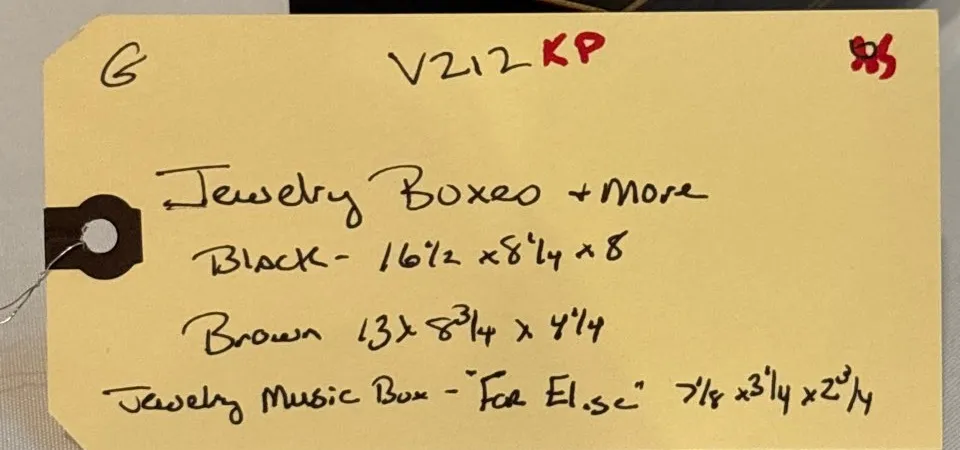 G V212 KP
Jewelry Boxes + More
Black - 16 1/2 x 8 1/4 x 8
Brown 13 x 8 3/4 x 4 1/4
Jewelry Music Box - "For Elise" 7 1/8 x 3 1/4 x 2 3/4